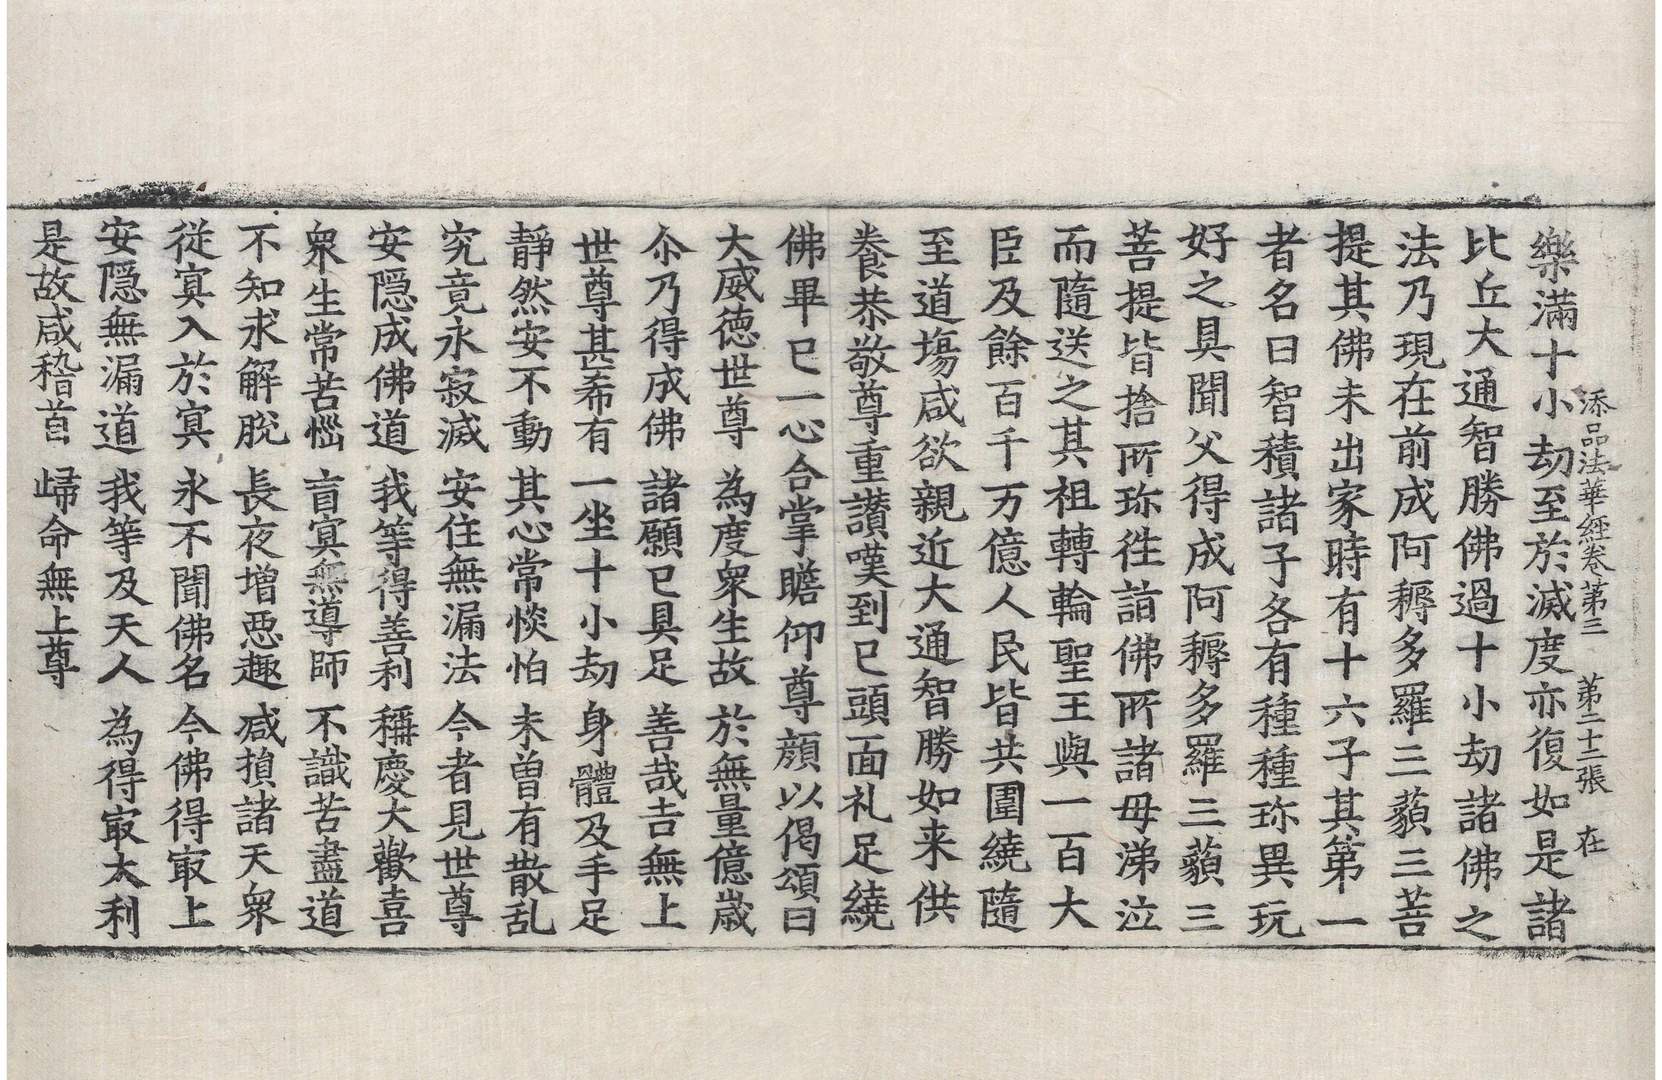 添品法華經卷第三 第二十二張 在
樂滿十小劫至於滅度亦復如是諸
比丘大通智勝佛過十小劫諸佛之
法乃現在前成阿耨多羅三藐三菩
提其佛未出家時有十六子其第一
者名曰智積諸子各有種種珎異玩
好之具聞父得成阿耨多羅三藐三
菩提皆捨所珎徃詣佛所諸母涕泣
而隨送之其祖轉輪聖王與一百大
臣及餘百千万億人民皆共圍繞隨
至道塲咸欲親近大通智勝如来供
養恭敬尊重讃嘆到已頭面礼足繞
佛畢已一心合掌瞻仰尊顔以偈頌曰
大威德世尊 為度衆生故 於無量億歲
尒乃得成佛 諸願已具足 善哉吉無上
世尊甚希有 一坐十小劫 身體及手足
靜然安不動 其心常惔怕 未曽有散乱
究竟永寂滅 安住無漏法 今者見世尊
安隠成佛道 我等得善利 稱慶大歡喜
衆生常苦惱 盲冥無導師 不識苦盡道
不知求解脫 長夜增惡趣 减損諸天衆
從冥入於冥 永不聞佛名 今佛得冣上
安隠無漏道 我等及天人 為得冣大利
是故咸稽首 歸命無上尊